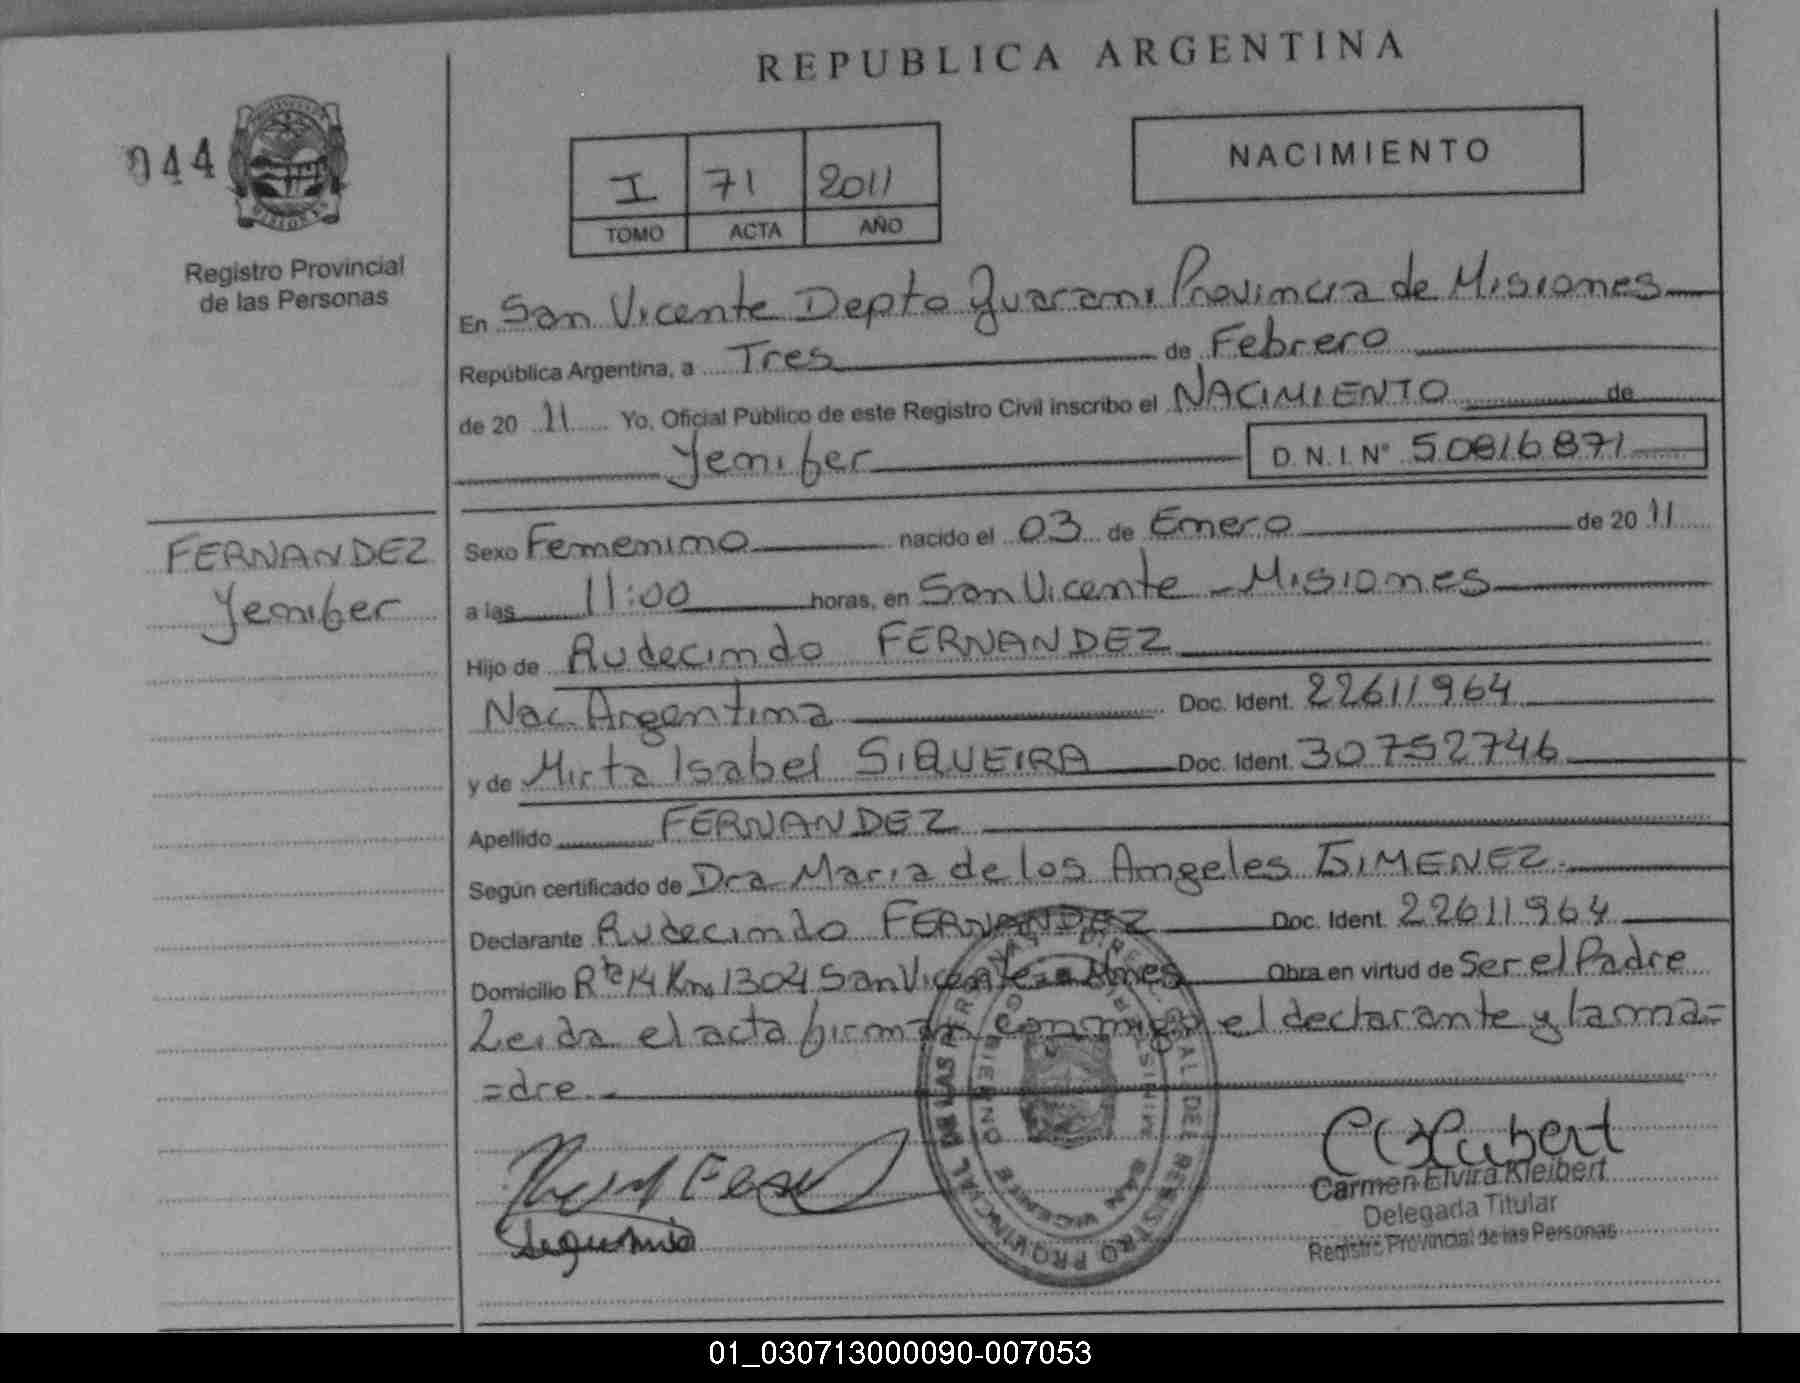 REPUBLICA ARGENTINA
044
MISIONES
Registro Provincial
de las Personas
I 71 2011
TOMO ACTA AÑO
NACIMIENTO
En San Vicente Depto Guarani Provincia de Misiones
República Argentina, a Tres de Febrero
de 20 11 Yo, Oficial Público de este Registro Civil inscribo el NACIMIENTO de
Yenifer D.N.I. N° 50816871
FERNANDEZ
Yenifer
Sexo Femenino nacido el 03 de Enero de 20 11
a las 11:00 horas, en San Vicente - Misiones
Hijo de Rudecindo FERNANDEZ
Nac. Argentina Doc. Ident. 22611964
y de Mirta Isabel SIQUEIRA Doc. Ident. 30752746
Apellido FERNANDEZ
Según certificado de Dra Maria de los Angeles GIMENEZ
Declarante Rudecindo FERNANDEZ Doc. Ident. 22611964
Domicilio Rta 14 Km 1304 San Vicente - Mnes Obra en virtud de Ser el Padre
Leida el acta firman conmigo el declarante y la ma=
=dre.
Carmen Elvira Kleibert
Delegada Titular
Registro Provincial de las Personas
01_030713000090-007053